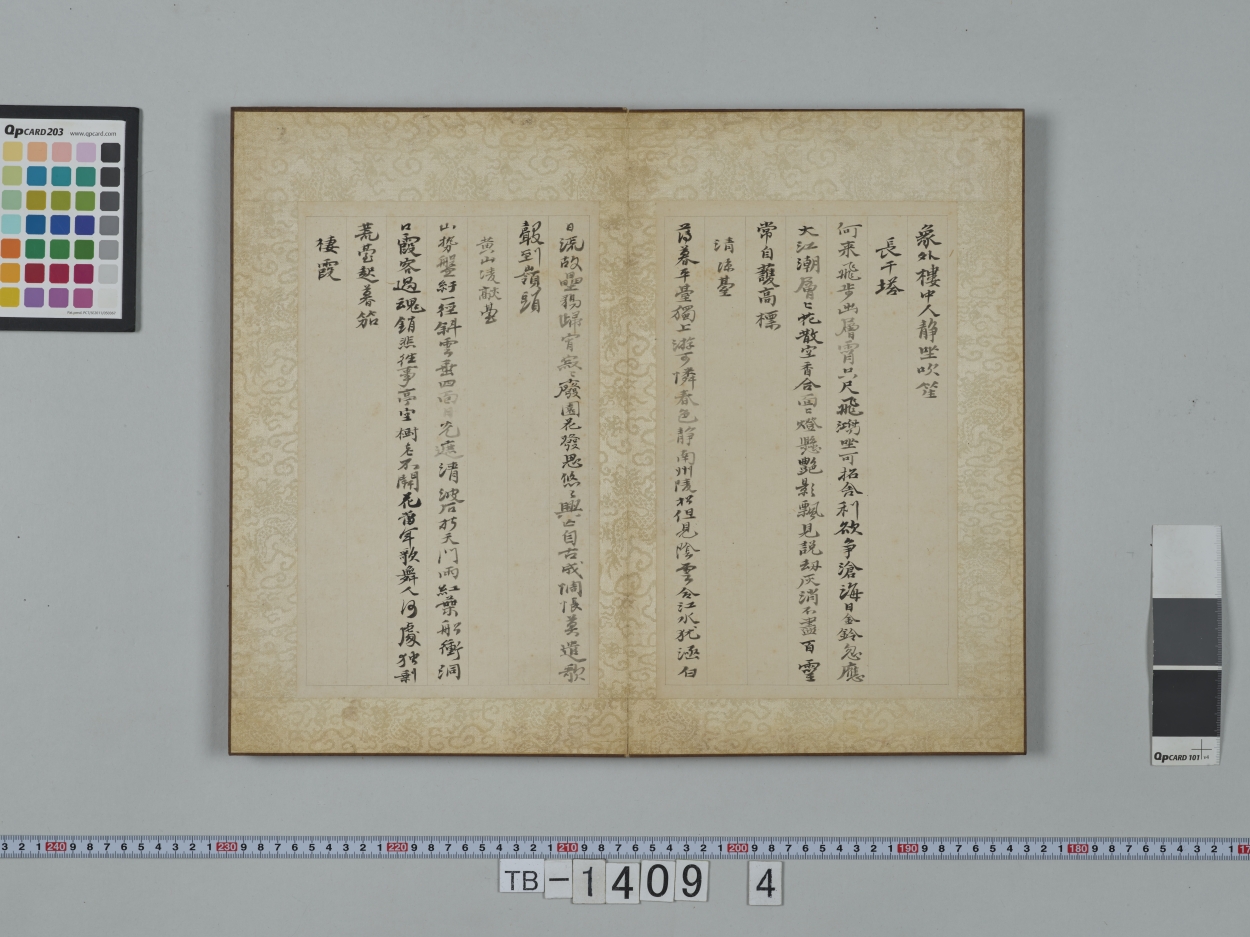 象外樓中人靜坐吹笙
長干塔
何來飛步出層霄只尺飛湖坐可招舍利欲爭滄海日金鈴忽應
大江潮層〻花散空香合面〻燈懸艷影飄見說劫灰消不盡百靈
常自護高標
清涼臺
薄暮平臺獨上游可憐春色靜南州陵松但見陰雲合江水猶涵白
日流故壘鴉歸宵寂〻廢園花發思悠〻興亡自古成惆悵莫遣歌
聲到嶺頭
黃山凌歊臺
山勢盤紆一徑斜雲垂四面日光遮清波石折天門雨紅葉船衝洞
口霞客過魂銷悲往事亭空樹老不開花當年歌舞人何處獨剩
荒臺起暮笳
棲霞
QpCARD 203 www.qpcard.com
QpCARD 101
TB-1409 4